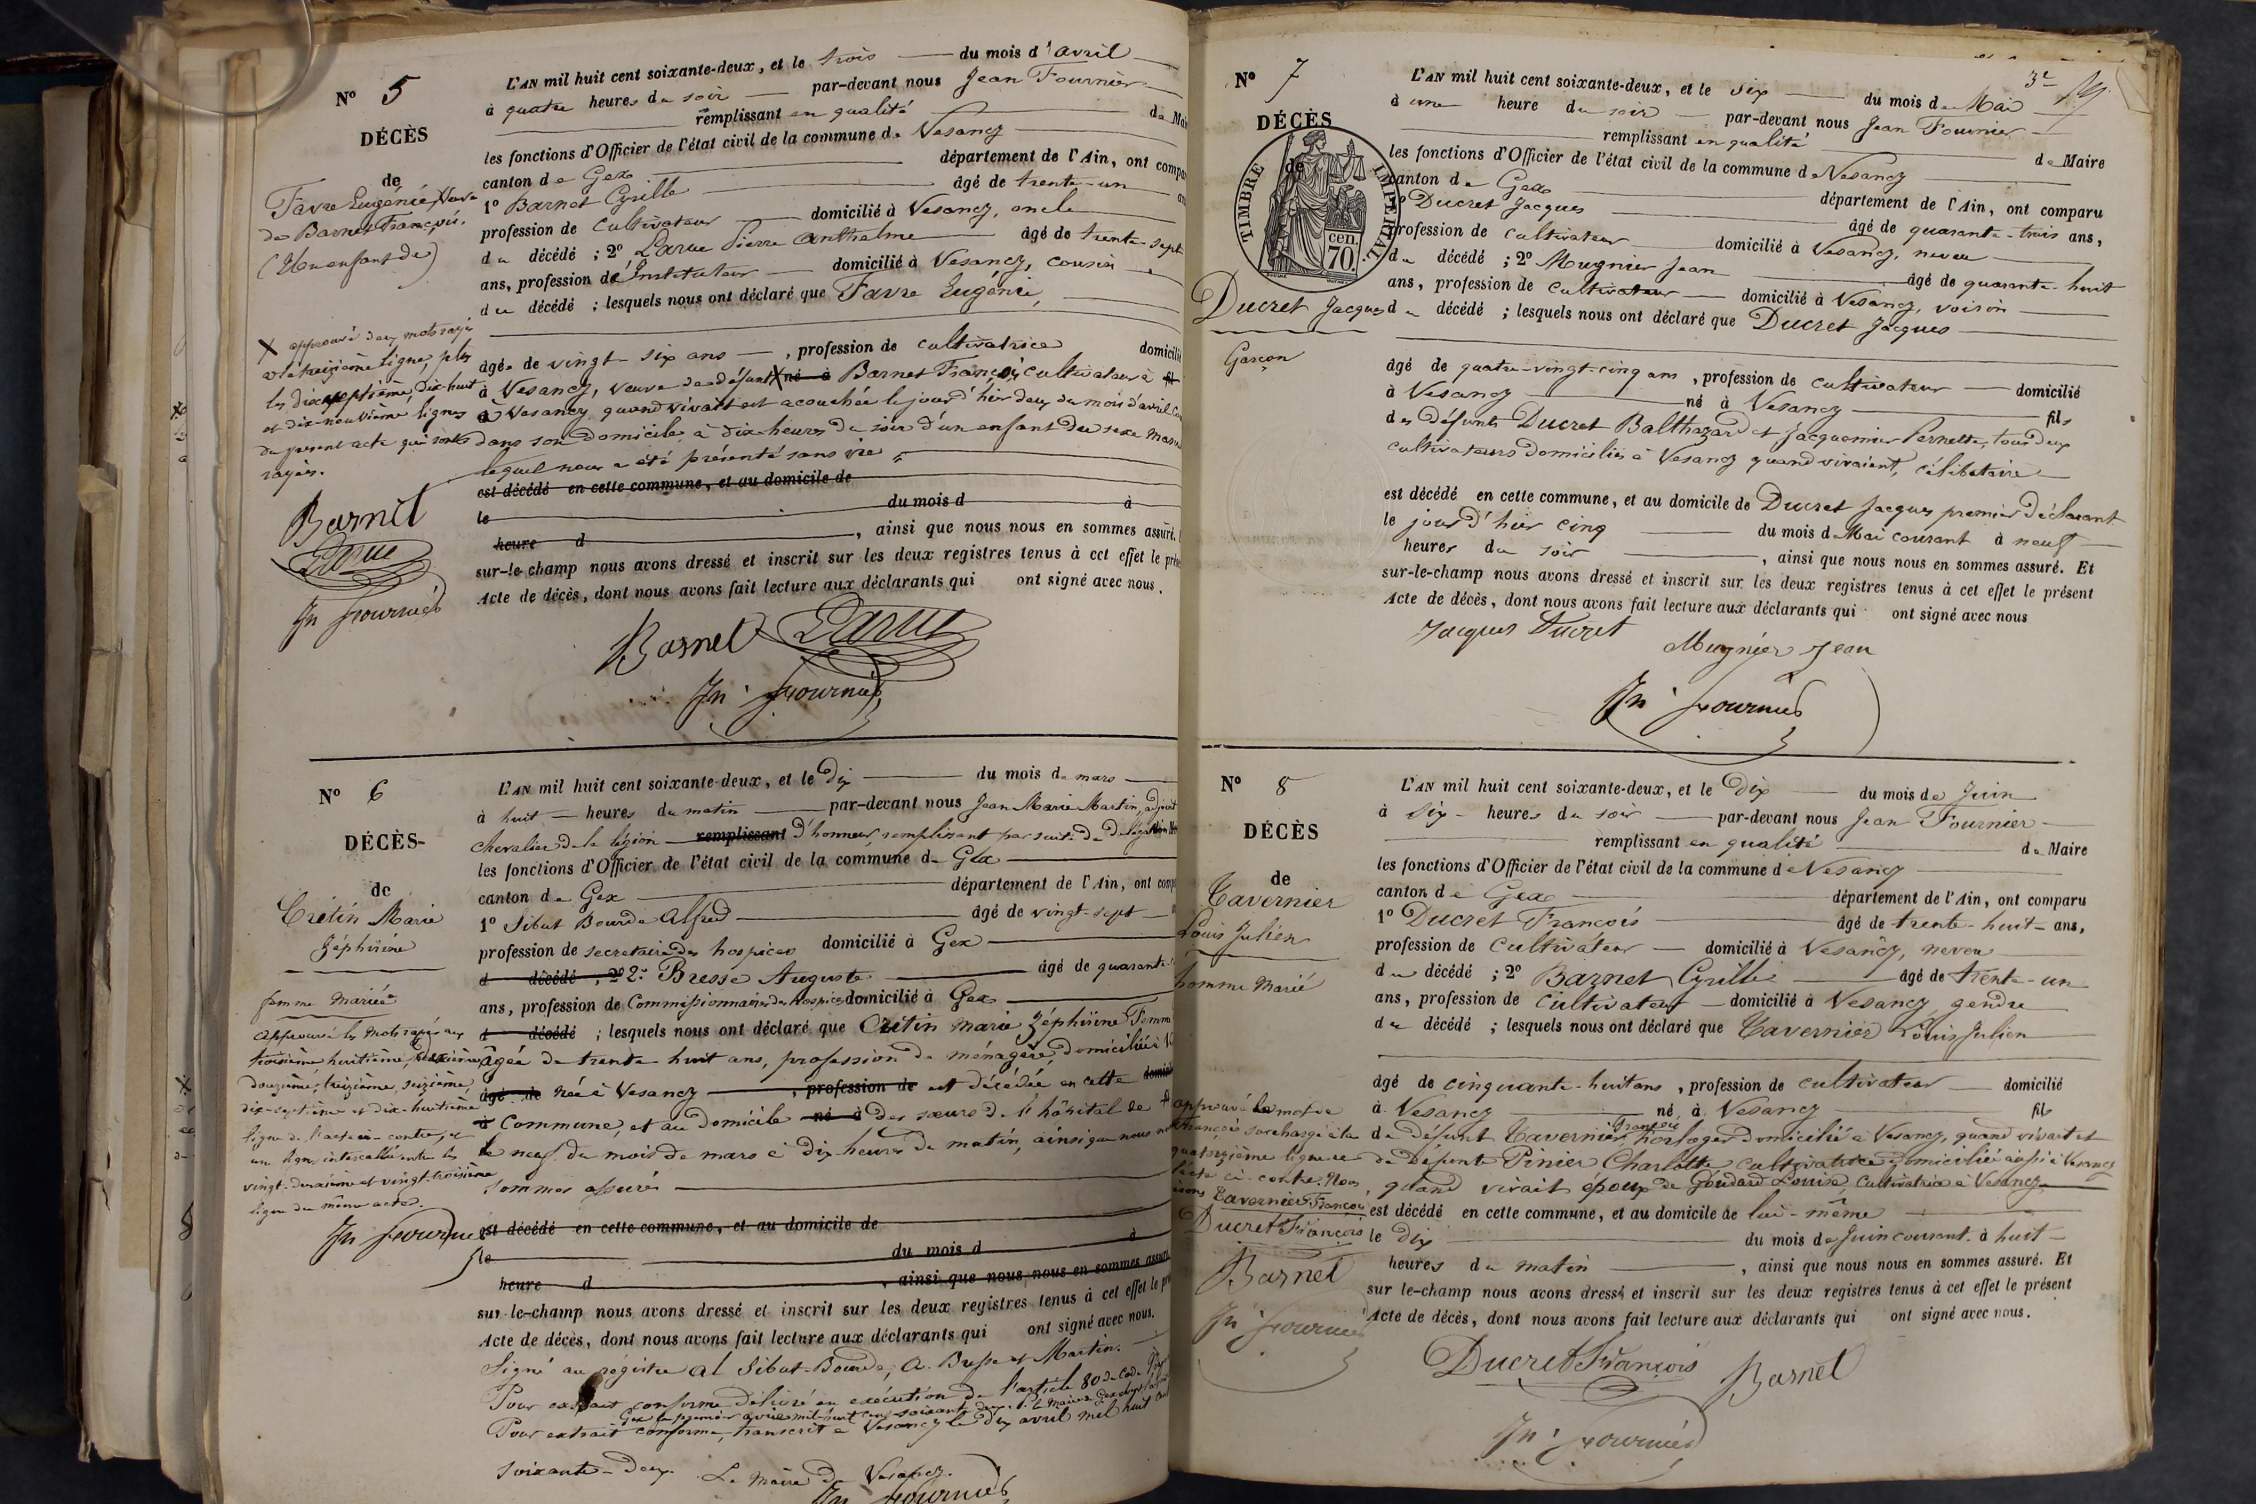 N° 5
DÉCÈS
de
Favre Eugénie, Veuve
de Barnet François.
(Un enfant de)
X approuvé deux mots rayés
à la treizième ligne, plus
les dix-septième, dix-huit
et dix-neuvième lignes
du présent acte qui sont
rayées.
Barnet
Larue
Jn Fournier
L'AN mil huit cent soixante-deux, et le trois du mois d'avril
à quatre heures du soir par-devant nous Jean Fournier
remplissant en qualité de Mai
les fonctions d'Officier de l'état civil de la commune de Vesancy
canton de Gex département de l'Ain, ont compa
1° Barnet Cyrille âgé de trente-un an
profession de cultivateur domicilié à Vesancy, oncle
du décédé ; 2° Larue Pierre Anthelme âgé de trente-sept
ans, profession d'Instituteur domicilié à Vesancy, cousin
du décédé ; lesquels nous ont déclaré que Favre Eugénie,
âgée de vingt-six ans, profession de cultivatrice domicilié
à Vesancy, veuve de défunt X né à Barnet François, cultivateur à fil
à Vesancy quand vivait est acouchée le jour d'hier deux du mois d'avril
dans son domicile à dix heures du soir d'un enfant du sexe
lequel nous a été présenté sans vie
est décédé en cette commune, et au domicile de
le du mois d à
heure d , ainsi que nous nous en sommes assuré.
sur-le-champ nous avons dressé et inscrit sur les deux registres tenus à cet effet le prés
Acte de décès, dont nous avons fait lecture aux déclarants qui ont signé avec nous.
Barnet Larue
Jn Fournier
N° 6
DÉCÈS
de
Crétin Marie
Zéphirine
femme mariée
Approuvé les mots rayés aux
troisième, huitième, dixième
douzième, treizième, seizième,
dix-septième et dix-huitième
ligne de l'acte ci-contre, et
une ligne intercallée entre les
vingt-deuxième et vingt-troisième
ligne du même acte.
Jn Fournier
L'AN mil huit cent soixante-deux, et le Dix du mois de mars
à huit heures du matin par-devant nous Jean Marie Martin, adjoint
chevalier de la légion remplissant d'honneur, remplissant par suite de délégation
les fonctions d'Officier de l'état civil de la commune de Gex
canton de Gex département de l'Ain, ont comp
1° Sibut Bourde Alfred âgé de vingt-sept
profession de secrétaire des hospices domicilié à Gex
d décédé ; 2° 2° Bresse Auguste âgé de quarante
ans, profession de Commissionnaire des hospices domicilié à Gex
d décédé ; lesquels nous ont déclaré que Crétin Marie Zéphirine Femme
âgée de trente-huit ans, profession de ménagère, domiciliée à
âgé de née à Vesancy , profession de est décédée en cette domici
à Commune, et au domicile né à des sœurs de l'hôpital de
le neuf du mois de mars à dix heures du matin, ainsi que nous
sommes assurés
est décédé en cette commune, et au domicile de
le du mois d à
heure d , ainsi que nous nous en sommes assuré
sur-le-champ nous avons dressé et inscrit sur les deux registres tenus à cet effet le pr
Acte de décès, dont nous avons fait lecture aux déclarants qui ont signé avec nous.
Signé au registre Al Sibut-Bourde, A. Bresse et Martin.
Pour extrait conforme délivré en exécution de l'article 80 du Code
Gex le premier avril mil huit cent soixante deux. Le Maire de Gex
Pour extrait conforme, transcrit à Vesancy le dix avril mil huit cent
soixante-deux. Le Maire de Vesancy.
Jn Fournier
3e
N° 7
DÉCÈS
de
TIMBRE IMPERIAL
70 cen.
Ducret Jacques
Garçon
L'AN mil huit cent soixante-deux, et le six du mois de Mai
à une heure du soir par-devant nous Jean Fournier
remplissant en qualité de Maire
les fonctions d'Officier de l'état civil de la commune de Vesancy
canton de Gex département de l'Ain, ont comparu
1° Ducret Jacques âgé de quarante-trois ans,
profession de cultivateur domicilié à Vesancy, neveu
du décédé ; 2° Mugnier Jean âgé de quarante-huit
ans, profession de cultivateur domicilié à Vesancy, voisin
du décédé ; lesquels nous ont déclaré que Ducret Jacques
âgé de quatre-vingt-cinq ans, profession de cultivateur domicilié
à Vesancy né à Vesancy fils
des défunts Ducret Balthazard et Jacquemier Pernette, tous deux
cultivateurs domiciliés à Vesancy quand vivaient, célibataire
est décédé en cette commune, et au domicile de Ducret Jacques premier déclarant
le jour d'hier cinq du mois de Mai courant à neuf
heures du soir , ainsi que nous nous en sommes assuré. Et
sur-le-champ nous avons dressé et inscrit sur les deux registres tenus à cet effet le présent
Acte de décès, dont nous avons fait lecture aux déclarants qui ont signé avec nous
Jacques Ducret
Mugnier Jean
Jn Fournier
N° 8
DÉCÈS
de
Tavernier
Louis Julien
homme marié
approuvé le mot de
François surchargé à la
quatorzième ligne de
l'acte ci-contre. Nous
disons Tavernier François
Ducret François
Barnet
Jn Fournier
L'AN mil huit cent soixante-deux, et le Dix du mois de Juin
à six heures du soir par-devant nous Jean Fournier
remplissant en qualité de Maire
les fonctions d'Officier de l'état civil de la commune de Vesancy
canton de Gex département de l'Ain, ont comparu
1° Ducret François âgé de trente-huit ans,
profession de cultivateur domicilié à Vesancy, neveu
du décédé ; 2° Barnet Cyrille âgé de trente-un
ans, profession de cultivateur domicilié à Vesancy gendre
du décédé ; lesquels nous ont déclaré que Tavernier Louis Julien
âgé de cinquante-huit ans, profession de cultivateur domicilié
à Vesancy né à Vesancy fils
de défunt Tavernier François horloger domicilié à Vesancy, quand vivait et
de défunte Pinier Charlotte cultivatrice domiciliée aussi à Vesancy
quand vivait époux de Goudard Louise, cultivatrice à Vesancy
est décédé en cette commune, et au domicile de lui-même
le Dix du mois de Juin courant à huit
heures du matin , ainsi que nous nous en sommes assuré. Et
sur le-champ nous avons dressé et inscrit sur les deux registres tenus à cet effet le présent
Acte de décès, dont nous avons fait lecture aux déclarants qui ont signé avec nous.
Ducret François Barnet
Jn Fournier